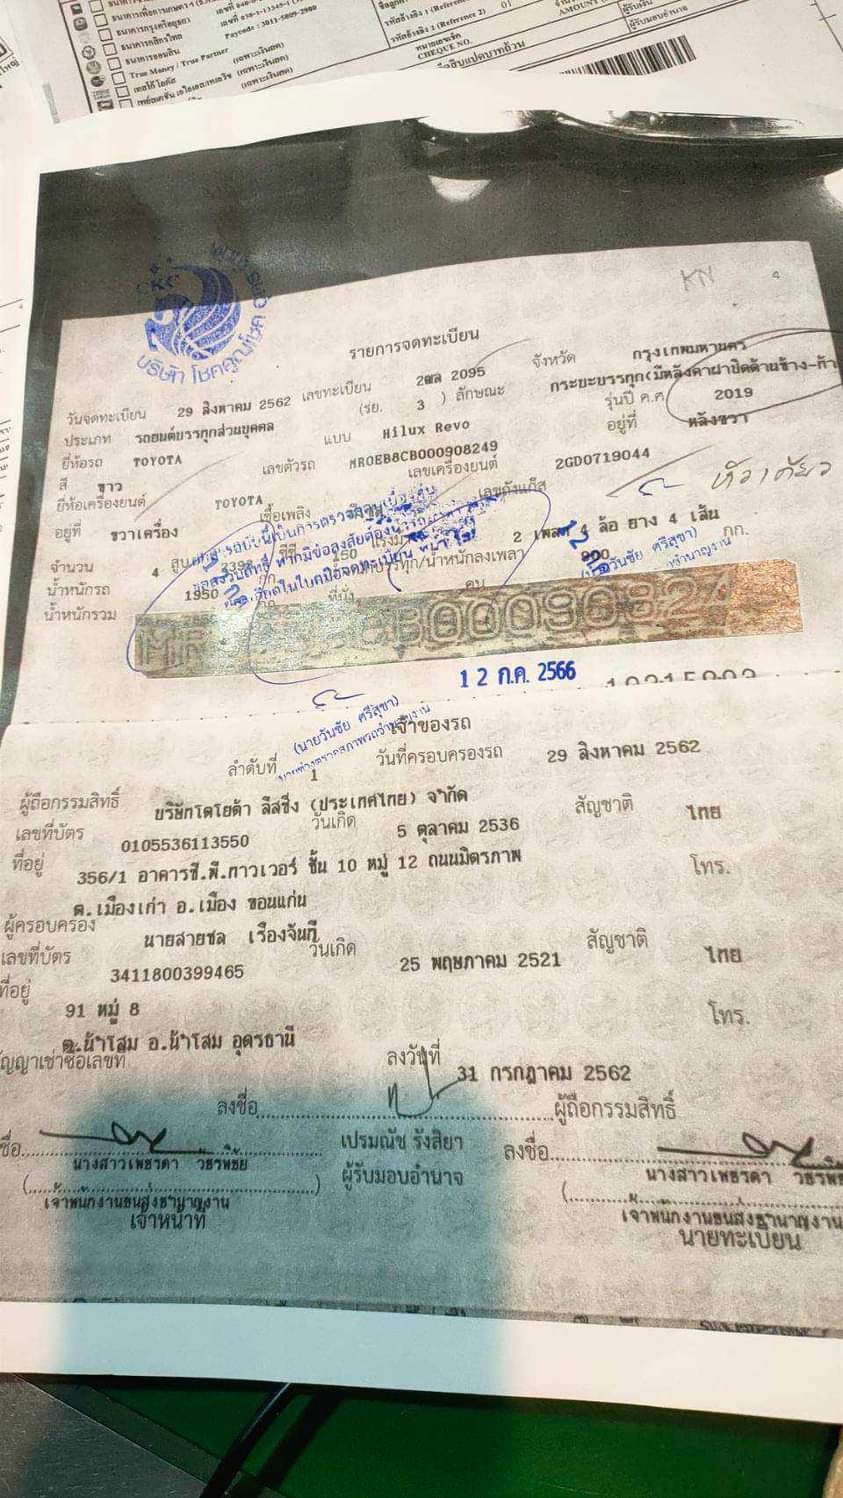 True Money / True Partner
CHEQUE NO.
KN
บริษัท โชคคูณโชค
รายการจดทะเบียน
วันจดทะเบียน 29 สิงหาคม 2562 เลขทะเบียน 2ฒล 2095 จังหวัด กรุงเทพมหานคร
ประเภท รถยนต์บรรทุกส่วนบุคคล (รย. 3 ) ลักษณะ กระบะบรรทุก(มีหลังคาฝาปิดด้านข้าง-ท้า
ยี่ห้อรถ TOYOTA แบบ Hilux Revo รุ่นปี ค.ศ. 2019
สี ขาว เลขตัวรถ MR0EB8CB000908249 อยู่ที่ หลังขวา
ยี่ห้อเครื่องยนต์ TOYOTA เลขเครื่องยนต์ 2GD0719044
อยู่ที่ ขวาเครื่อง เชื้อเพลิง เลขถังแก๊ส
จำนวน 4 สูบ 2393 ซีซี 150 แรงม้า 2 เพลา 4 ล้อ ยาง 4 เส้น
น้ำหนักรถ 1950 กก. น้ำหนักบรรทุก/น้ำหนักลงเพลา 900 กก.
น้ำหนักรวม ที่นั่ง คน
(นายวันชัย ศรีสุขา)
12 ก.ค. 2566
(นายวันชัย ศรีสุขา)
เจ้าของรถ
ลำดับที่ 1 วันที่ครอบครองรถ 29 สิงหาคม 2562
ผู้ถือกรรมสิทธิ์ บริษัทโตโยต้า ลีสซิ่ง (ประเทศไทย) จำกัด
เลขที่บัตร 0105536113550 วันเกิด 5 ตุลาคม 2536 สัญชาติ ไทย
ที่อยู่ 356/1 อาคารซี.พี.ทาวเวอร์ ชั้น 10 หมู่ 12 ถนนมิตรภาพ โทร.
ต.เมืองเก่า อ.เมือง ขอนแก่น
ผู้ครอบครอง นายสายชล เรืองจันที
เลขที่บัตร 3411800399465 วันเกิด 25 พฤษภาคม 2521 สัญชาติ ไทย
ที่อยู่ 91 หมู่ 8 โทร.
ต.น้ำโสม อ.น้ำโสม อุดรธานี
ัญญาเช่าซื้อเลขที่ ลงวันที่ 31 กรกฎาคม 2562
ลงชื่อ ผู้ถือกรรมสิทธิ์
เปรมณัช รังสิยา
ผู้รับมอบอำนาจ
ลงชื่อ
เจ้าพนักงานขนส่งชำนาญงาน
เจ้าหน้าที่
เจ้าพนักงานขนส่งชำนาญงาน
นายทะเบียน